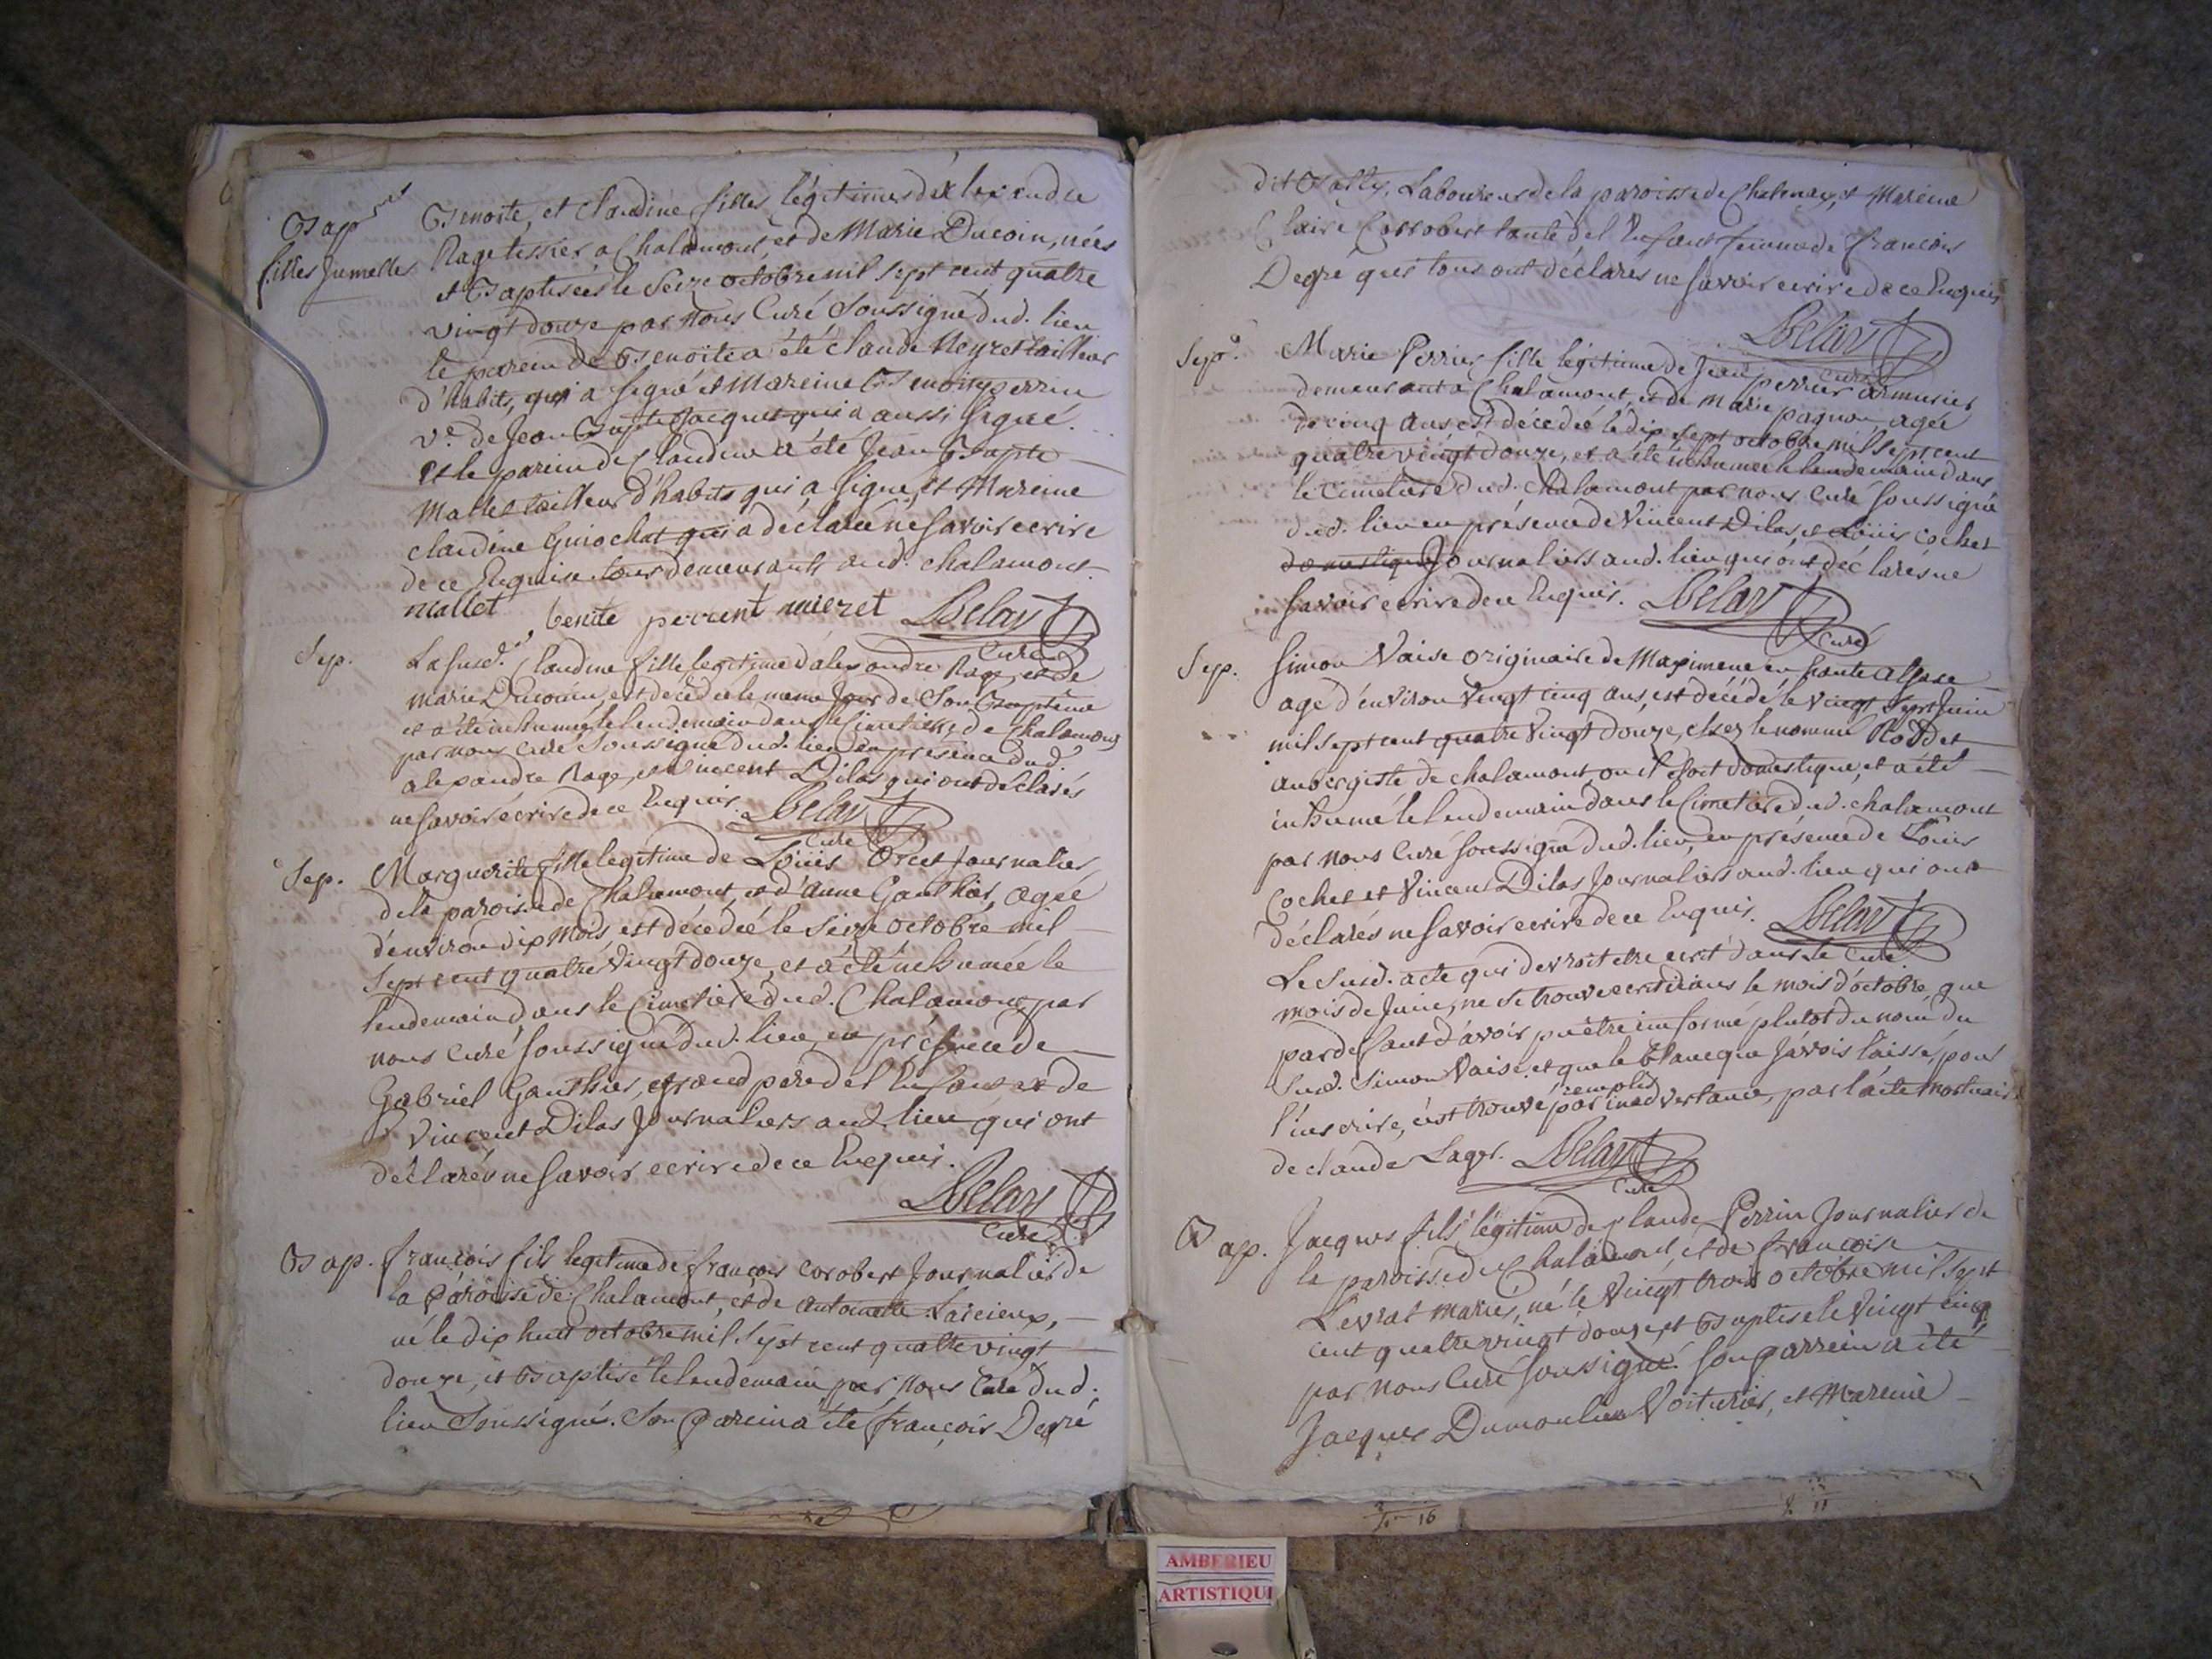 Bap.mes
filles Jumelles
Benoite, et Claudine filles légitimes d'alexandre
Rage tessier a Chalamont, et de Marie Ducoin, nées
et Baptisées le Seize octobre mil sept cent quatre
vingt douze par Nous Curé Soussigné dud. lieu
le parein de Benoite a été claude Neyret tailleur
d'habits, qui a signé et Mareine Benoite perrin
ve. de Jean Bapte Jacquet qui a aussi signé.
Et le parein de Claudine a été Jean Bapte
Mallet tailleur d'habits qui a signé, et Mareine
claudine Guiochat qui a déclaré ne savoir ecrire
de ce Enquise tous demeurants aud. chalamont.
mallet benite perrent Belay
Curé
Sep. La susd.e Claudine fille legitime d'alexandre Rage et de
marie Ducoin, est décédée le même Jour de Son Baptême
et a été inhumée le lendemain dans le Cimetiere de Chalamont
par nous curé Soussigné dud. lieu en présence dud.
alexandre Rage, et Vincent Dilas qui ont déclarés
ne savoir écrire de ce Enquis. Belay
Curé
Sep. Marguerite fille légitime de Loüis Orset Journalier
de la paroisse de Chalamont, et d'anne Gauthier, agée
d'environ dix Mois est décédée le Seize octobre mil
Sept cent quatre Vingt douze, et a été inhumée le
lendemain dans le Cimetiere dud. Chalamont par
nous Curé soussigné dud. lieu, en présence de
Gabriel Gauthier, grand pere de l'Enfant et de
Vincent Dilas Journaliers aud. lieu qui ont
déclarés ne savoir ecrire de ce Enquis.
Belay
Curé
Bap. françois fils legitime de françois corobert Journalier de
la paroisse de Chalamont, et de antoinette Larcieux,
né le dix huit octobre mil Sept cent quatre vingt
douze, et Baptisé le lendemain par Nous Curé dud.
lieu Soussigné. Son parein a été françois Degré
dit Bally, Laboureur de la paroisse de Chatenay, et Mareine
Claire Corrobert tante de l'Enfant femme de françois
Degré qui tous ont déclarés ne savoir ecrire de ce Enquis
Belay
Curé
Sepe. Marie Perrier fille légitime de Jean perrier armurier
demeurant a Chalamont, et de Marie pagnon agée
de cinq ans est décédée le dix sept octobre mil sept cent
quatre vingt douze, et a été inhumée le lendemain dans
le Cimetiere dud. Chalamont par nous Curé soussigné
dud. lieu en présence de Vincent Dilas, et Loüis cochet
domestique Journaliers aud. lieu qui ont déclarés ne
savoir ecrire de ce Enquis. Belay
Curé
Sep. Simon Vaise originaire de Maximene en haute alsace
agé d'environ Vingt cinq ans, est décédé le vingt sept Juin
mil sept cent quatre Vingt douze, chez le nommé Roddet
aubergiste de chalamont, ou il étoit domestique, et a été
inhumé le lendemain dans le Cimetiere dud. chalamont
par nous Curé soussigné dud. lieu, en présence de Loüis
Cochet et Vincent Dilas Journaliers aud. lieu qui ont
déclarés ne savoir ecrire de ce Enquis. Belay
Curé
Le susd. acte qui devroit etre ecrit dans le
mois de Juin, ne se trouve ecrit dans le mois d'octobre, que
par defaut d'avoir pu être informé plutot du nom du
susd. Simon Vaise, et que le blanc que J'avois laissé, pour
l'inscrire, s'est trouvé remplis par inadvertance, par l'acte mortuaire
de claude Lager. Belay
Curé
Bap. Jacques fils légitime de Claude Perrin Journalier de
la paroisse de Chalamont, et de françoise
Levrat mariés, né le Vingt trois octobre mil sept
cent quatre vingt douze, et Baptisé le Vingt cinq
par nous Curé soussigné. son parrein a été
Jacques Dumoulin Voiturier, et Mareine
16
11
AMBERIEU
ARTISTIQUE